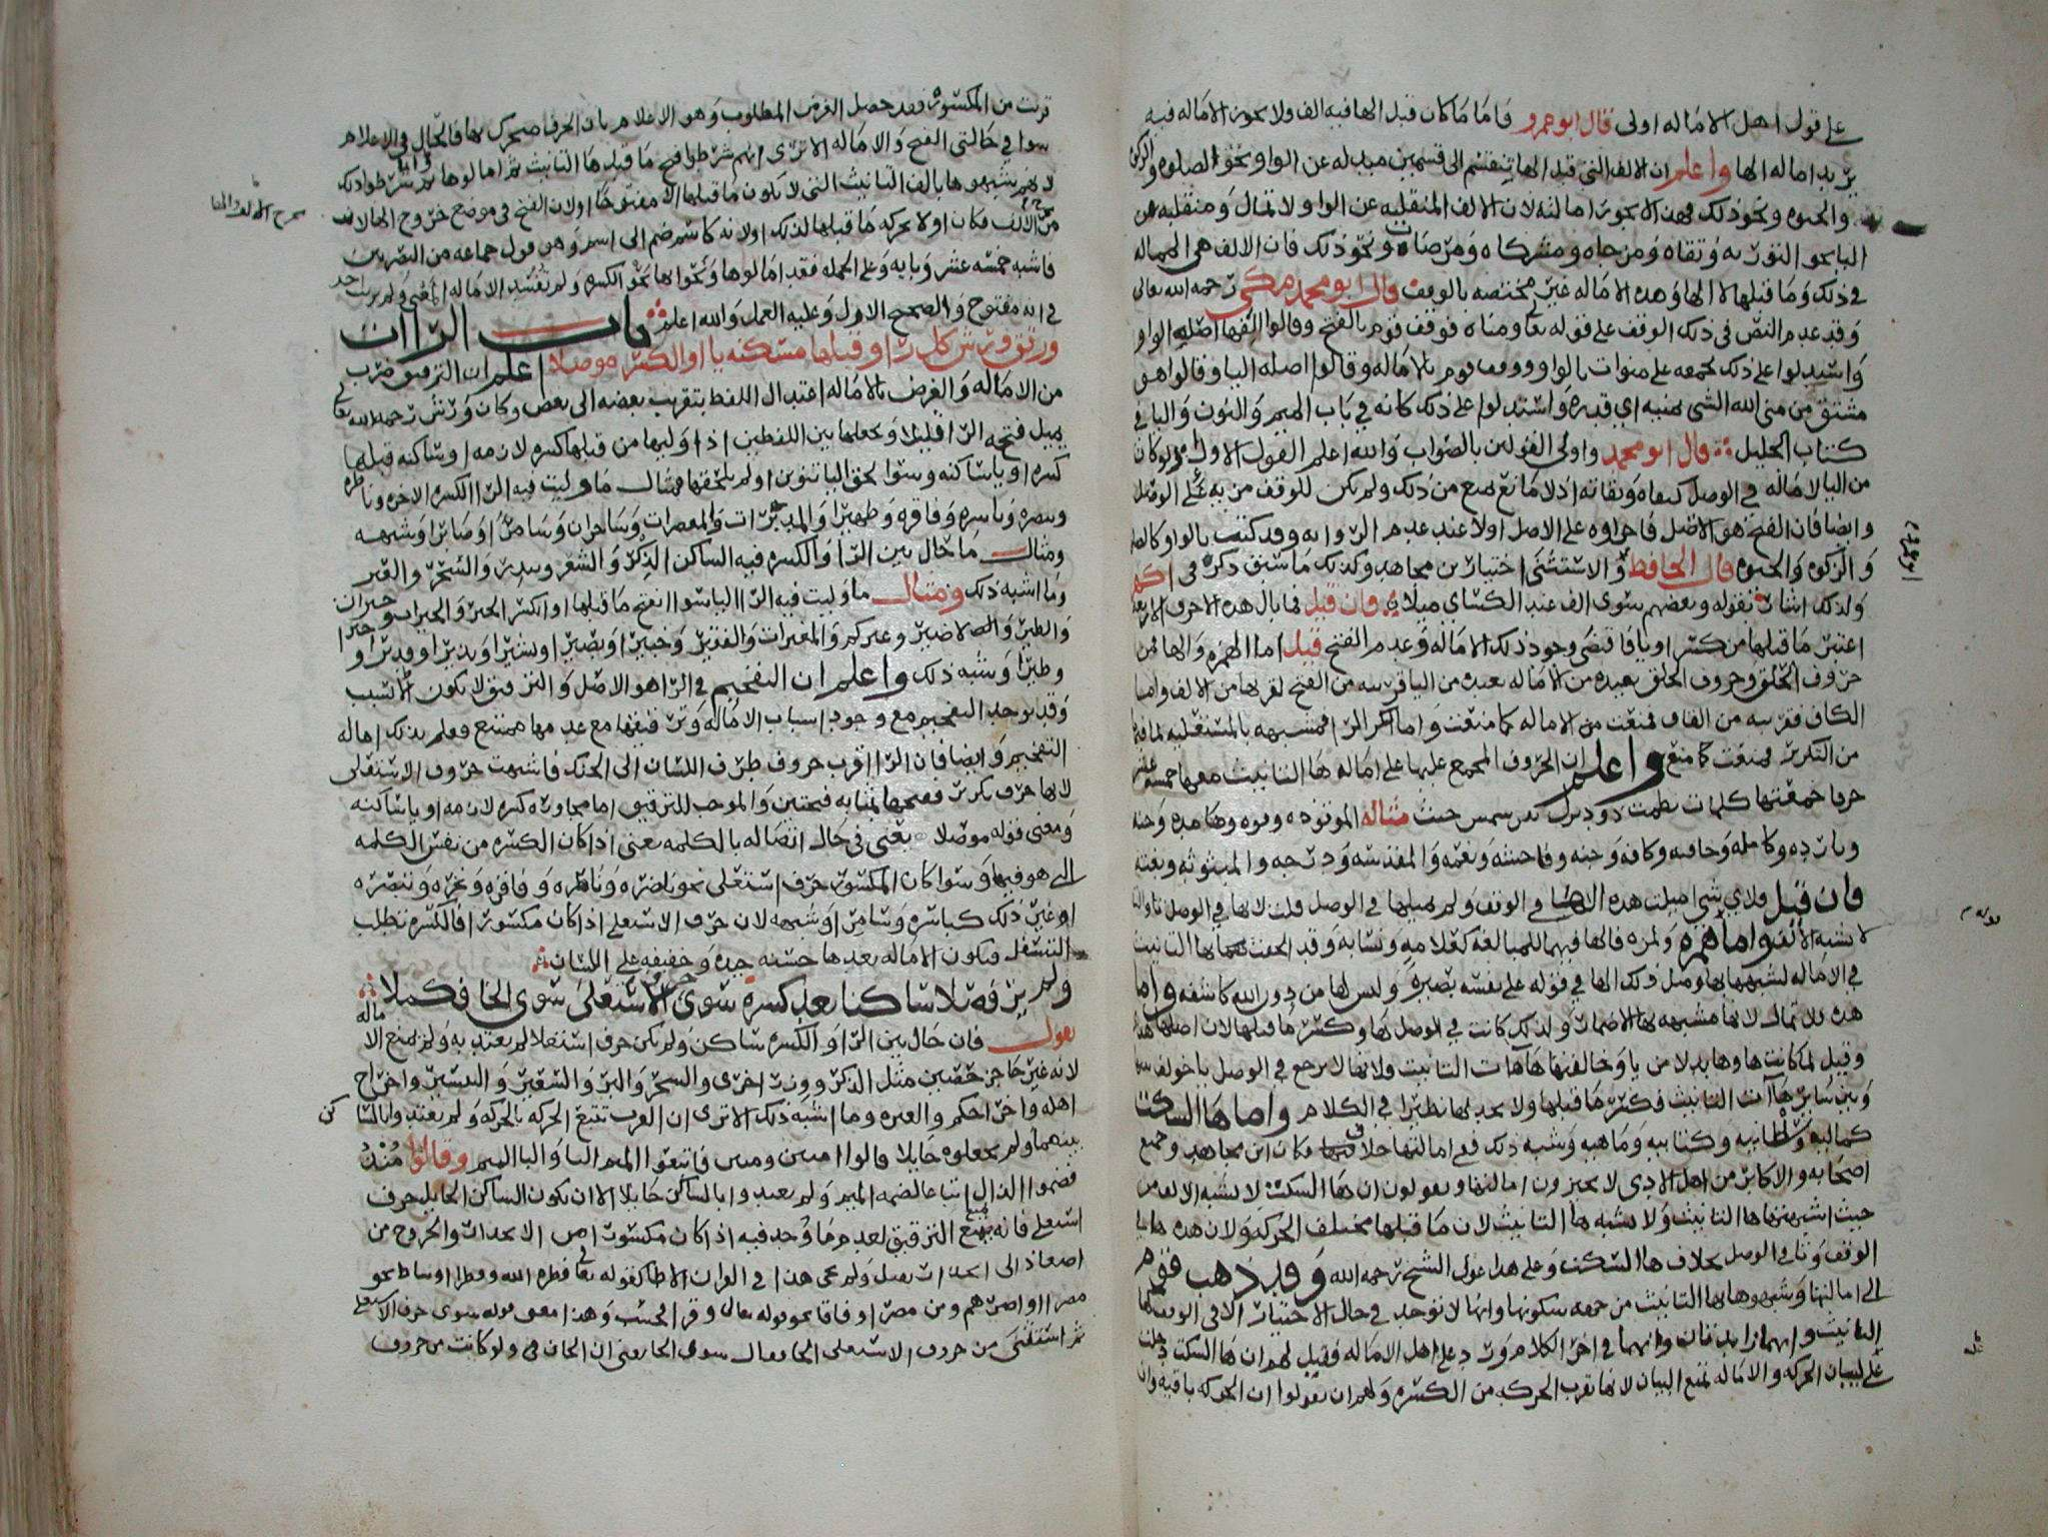 على قول اهل الاماله اولى قال ابو عمرو فاما ما كان قبل الها فيه الف ولا يجوز الاماله فيه
يريد اماله الها واعلم ان الالف التي قبل الها تنقسم الى قسمين مبدله عن الواو نحو الصلوه والزكوه
والحيوه ونحو ذلك فهذه لا يجوز امالته لان الالف المنقلبه عن الواو لا تمال ومنقلبه عن
اليا نحو التوريه وتقاه ومزجاه ومشكاه ومرضات ونحو ذلك فان الالف هي المماله
في ذلك وما قبلها لا الها وهذه الاماله غير مختصه بالوقف قال ابو محمد مكي رحمه الله تعالى
وقد عدم النص في ذلك الوقف على قوله تعالى ومناه فوقف قوم بالفتح وقالوا الفها اصلها الواو
واستدلوا على ذلك بجمعه على منوات بالواو ووقف قوم بالاماله وقالوا اصله اليا وقالوا هو
مشتق من منى الله الشي يمنيه اي قدره واستدلوا على ذلك كانه في باب الميم والنون واليا في
كتاب الخليل قال ابو محمد واولى القولين بالصواب والله اعلم القول الاول ولو كان
من اليا لاماله في الوصل كتقاه وتقاته اذ لا مانع يمنع من ذلك ولم يكن للوقف مزيه على الوصل
وايضا فان الفتح هو الاصل فاجراوه على الاصل اولا عند عدم الروايه وقد كتبت بالواو كالصلاه
والزكوه والحيوه قال الحافظ والاستثنى اختيار بن مجاهد وكذلك ما سبق ذكره في اكهر
ولذلك اشار بقوله وبعضهم سوى الف عند الكساي ميلا فان قيل فما بال هذه الاحرف الاربعه
اعتبر ما قبلها من كسر او يا فاقتضى وجود ذلك الاماله وعدم الفتح قيل اما الهمزه والها فمن
حروف الحلق وحروف الحلق بعيده من الاماله بعيده من اليا قريبه من الفتح لقربها من الالف واما
الكاف فقريبه من القاف فمنعت من الاماله كما منعت واما الرا فمشبهه بالمستعليه لما فيها
من التكرير فمنعت كما منع واعلم ان الحروف المجمع عليها على اماله ها التانيث معها خمسه عشر
حرفا جمعتها كلمات مثاله الموقوذه وقوه وهامده وجنه
فان قيل فلاي شي اميلت هذه الها في الوقف ولم يميلها في الوصل قلت لانها في الوصل تا والتا
لا تشبه الالف واما همزه ولمزه فالها فيهما للمبالغه كعلامه ونسابه وقد الحقت بها التانيث
في الاماله لشبهها بها ومثل ذلك الها في قوله على نفسه بصيره وليس لها من دون الله كاشفه واما
هذه فلا تمال لانها مشبهه بها الاضمار ولذلك كانت في الوصل بها وكسر ما قبلها لان اصلها هذا
وقيل لما كانت ها وها بدلا من يا وخالفتها هاات التانيث ولانها لا ترجع في الوصل تا خولف بينها
وبين ساير هاآت التانيث فكسر ما قبلها ولا نجد لها نظيرا في الكلام واما ها السكت
كماليه وسلطانيه وكتابيه وماهيه وشبه ذلك ففي امالتها خلاف فكان ابن مجاهد وجميع
اصحابه والاكابر من اهل الادى لا يجيزون امالتها ويقولون ان ها السكت لا تشبه الالف من
حيث اشبهتها ها التانيث ولا تشبه ها التانيث لان ما قبلها مختلف الحركه ولان هذه ها في
الوقف وتا في الوصل بخلاف ها السكت وعلى هذا عول الشيخ رحمه الله وقد ذهب قوم
الى امالتها وشبهوها بها التانيث من جهه سكونها وانها لا توجد في حال الاختيار الا في الوقف كها
التانيث وانهما زايدتان وانهما في اخر الكلام ورد على اهل الاماله فقيل لهم ان ها السكت دخلت
على لبيان الحركه والاماله تمنع البيان لانها تقرب الحركه من الكسره ولهم ان يقولوا ان الحركه باقيه وان
قربت من المكسوره فقد حصل الغرض المطلوب وهو الاعلام بان الحرف متحرك بها فالحال في الاعلام
سوا في حالتي الفتح والاماله الا ترى انهم شرطوا فتح ما قبل ها التانيث ثم امالوها وانما شرطوا ذلك
لانهم يشبهوها بالف التانيث التي لا يكون ما قبلها الا مفتوحا اولان الفتح في موضع خروج الها لانه
من الالف فكان اولا بحركه ما قبلها لذلك اولانه كاسم ضم الى اسم وهو قول جماعه من البصريين
فاشبه خمسه عشر وبابه وعلى الجمله فقد امالوها ونحوا بها نحو الكسره ولم تفسد الاماله المعنى ولم يرتب احد
في انه مفتوح والصحيح الاول وعليه العمل والله اعلم باب الراآت
ورقق ورش كل را وقبلها مسكنه يا او الكسر موصلا اعلم ان الترقيق ضرب
من الاماله والغرض بالاماله اعتدال اللفظ بتقريب بعضه الى بعض وكان ورش رحمه الله تعالى
يميل فتحه الرا قليلا ويجعلها بين اللفظين اذا وليها من قبلها كسره لازمه او ساكنه قبلها
كسره او يا ساكنه وسوا لحق اليا تنوين او لم يلحقها فمثال ما وليت فيه الرا الكسره الاخره وناظره
وتبصره وباسره وفاقره وطهيرا والمدبرات والمعصرات وساحران وسامرا وصابرا وشبهه
ومثال ما حال بين الرا والكسره فيه الساكن الذكر والشعر وسدر والسحر
وما اشبه ذلك ومثال ما وليت فيه الرا اليا سوا انفتح ما قبلها او انكسر الخير والخيرات وحيران
والطير وعشيركم والمغيرات والفقير وخبيرا وبصيرا وبشيرا ونذيرا وقديرا
وطيرا وشبه ذلك واعلم ان التفخيم في الرا هو الاصل والترقيق لا يكون الا لسبب
وقد يوجد التفخيم مع وجود اسباب الاماله وترقيقها مع عدمها ممتنع فعلم بذلك اصاله
التفخيم وايضا فان الرا اقرب حروف طرف اللسان الى الحنك فاشبهت حروف الاستعلى
لانها حرف تكرير ففتحها بمثابه فتحتين والموجب للترقيق اما مجاوره كسره لازمه او يا ساكنه
ومعنى قوله موصلا يعني في حال اتصاله بالكلمه يعني اذا كان الكسره من نفس الكلمه
التي هو فيها وسوا كان المكسور حرف استعلى نحو ناضره وناظره وفاقره
او غير ذلك كباسره وسامرا وشبهه لان حرف الاستعلى اذا كان مكسورا فالكسره تطلب
التسفل فتكون الاماله بعدها حسنه جيده وخفيفه على اللسان
ولم ير فصلا ساكنا بعد كسره سوى حرف الاستعلى سوى الخا فكملا
يقول فان حال بين الرا والكسره ساكن ولم يكن حرف استعلا لم يعتد به ولم يمنع الاماله
لانه غير حاجز حصين مثل الذكر ووزر اخرى والسحر والبر والشعر واخراج
اهله واخراجكم وما اشبه ذلك الا ترى ان العرب تتبع الحركه بالحركه ولم يعتدوا بالساكن
بينهما ولم يجعلوه حايلا قالوا فاتبعوا الميم التا والتا الميم وقالوا منذ
فضموا الذال اتباعا لضمه الميم ولم يعتدوا بالساكن حايلا الا ان يكون الساكن الحايل حرف
استعلى فانه يمنع الترقيق لعدم ما وجد فيه اذا كان مكسورا من الانحدار والخروج من
اصعاد الى انحدار ثقيل ولم يجى هذا في القران الا طا كقوله تعالى فطره الله وقطرا وصاد نحو
مصرا او اصرهم ومن مصر او قافا نحو قوله تعالى وقرا فحسب وهذا معنى قوله سوى حرف الاستعلى
ثم استثنى من حروف الاستعلى الخا فقال سوى الخا يعني ان الخا في ولو كانت من حروف